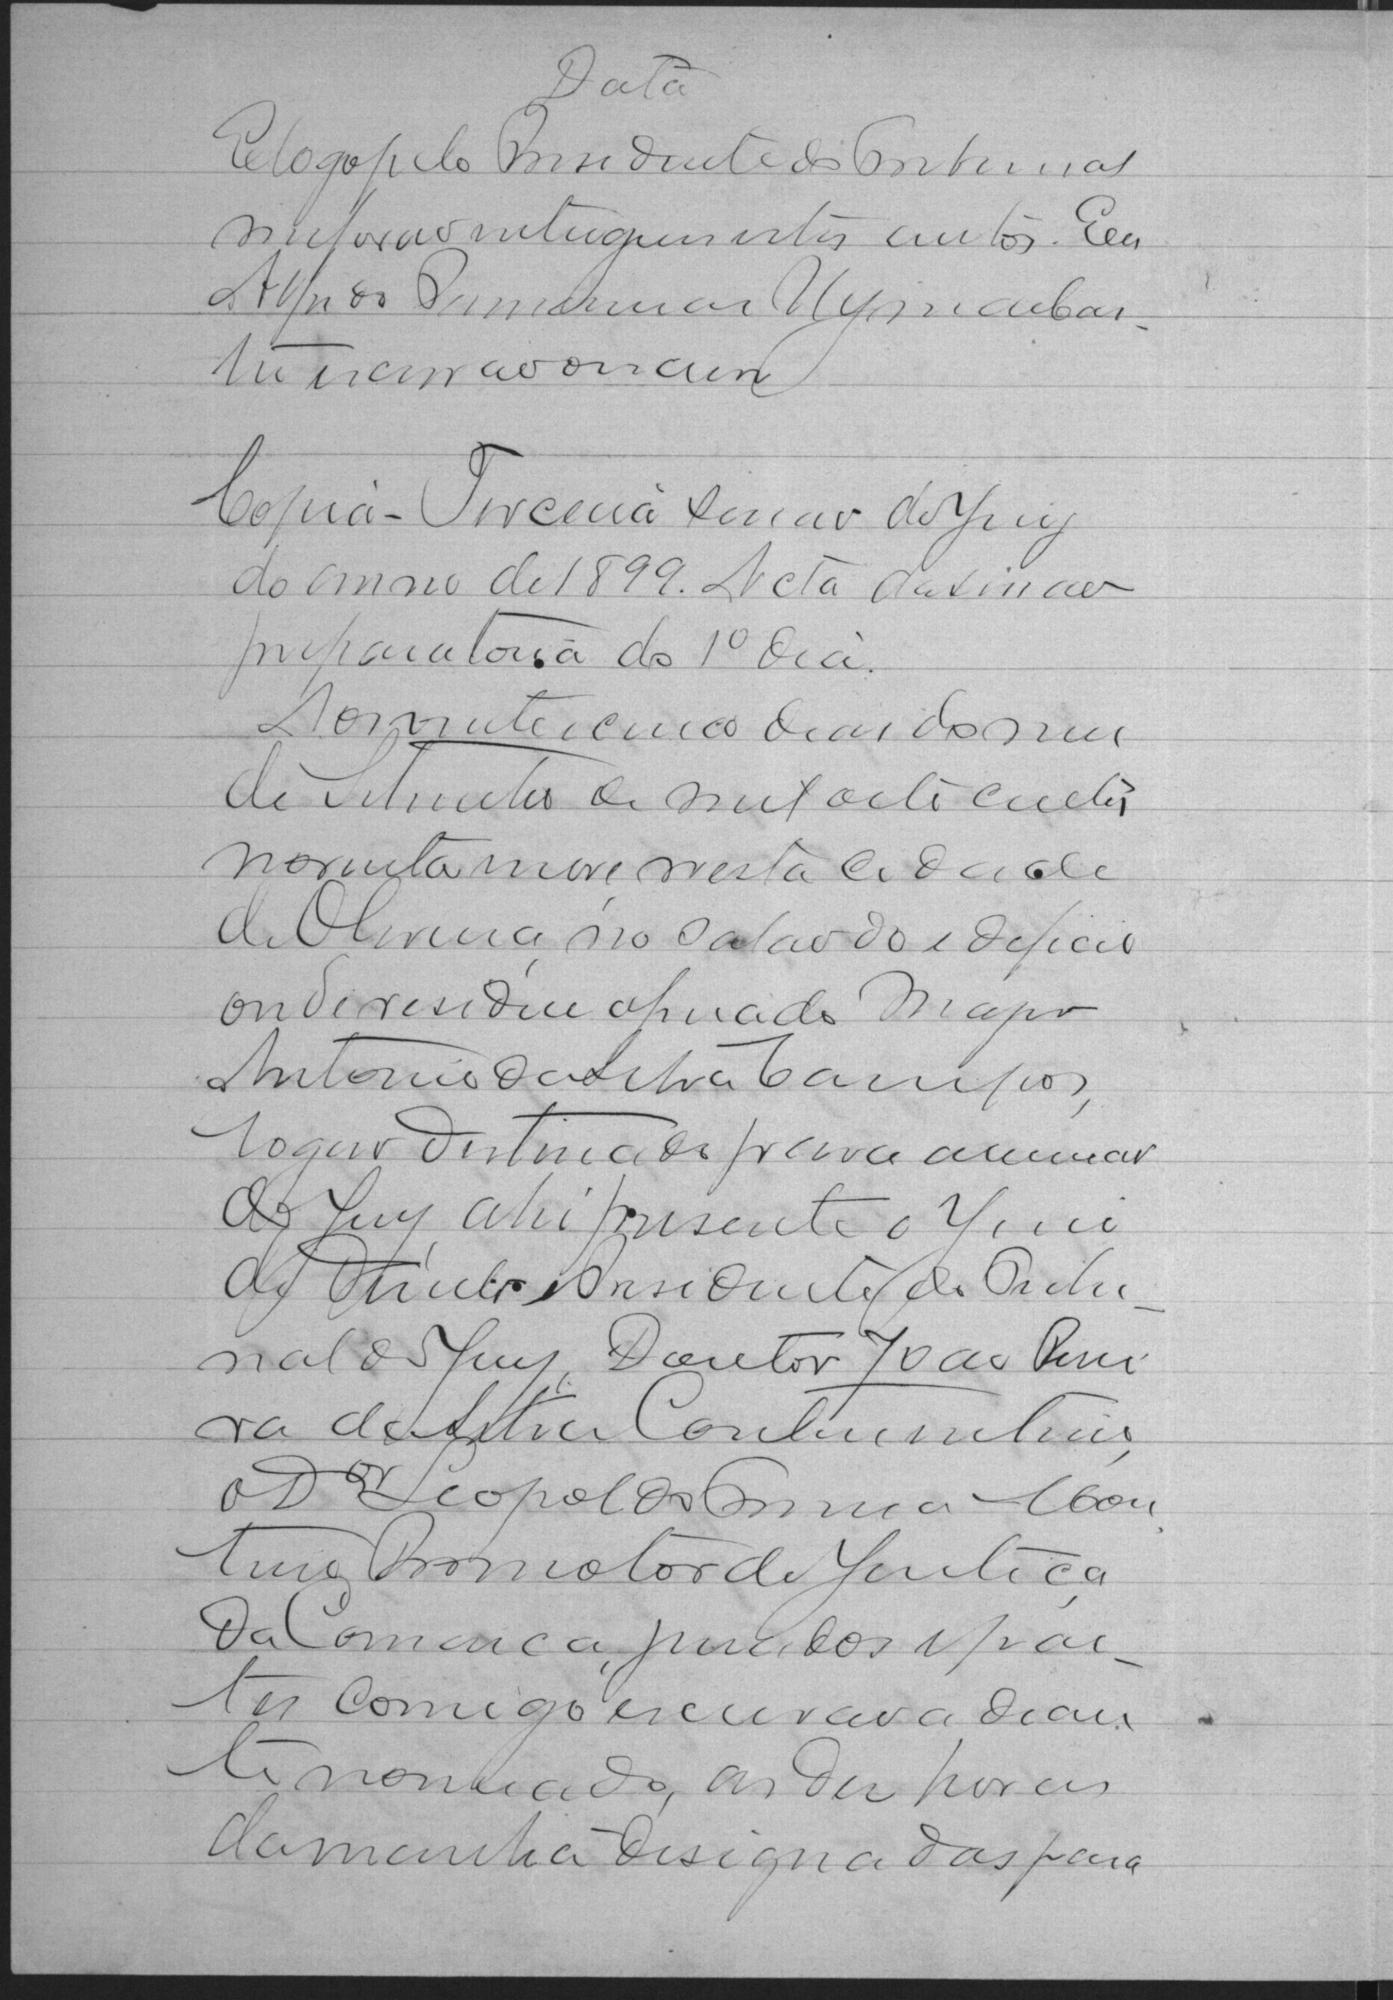 Data
E logo pelo Presidente do Tribunal
me forão entregues estes autos. Eu
escrivão o escrevi
Copia - Terceira sessão do Jury
do anno de 1899. Acta da sessão
preparatoria do 1º dia.
Aos vinte e cinco dias do mez
de Setembro de mil oito centos
noventa nove nesta cidade
de Oliveira, no salão do edificio
onde reside o finado Major
Antonio da Silva Campos,
logar destinado para a reunião
do Jury, ahi presente o Juiz
de Direito Presidente do Tribu-
nal do Jury, Doutor João Perei
ra da Silva Continentino,
o Dor Leopoldo
Promotor de Justiça
da Comarca, jurados e par-
tes comigo escrivão adian
te nomeado, as dez horas
da manhã designadas para